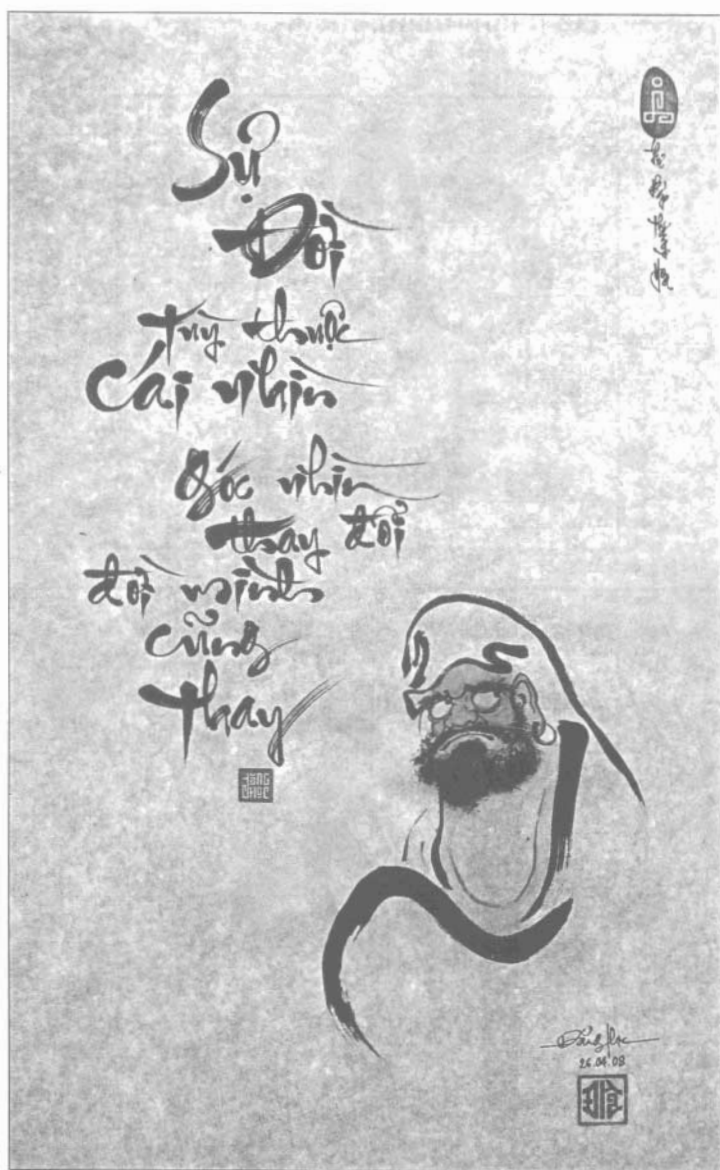 Sự
Đời
tuỳ thuộc
Cái nhìn
Góc nhìn
thay đổi
đời mình
cũng
thay
Đăng Học
26.04.08